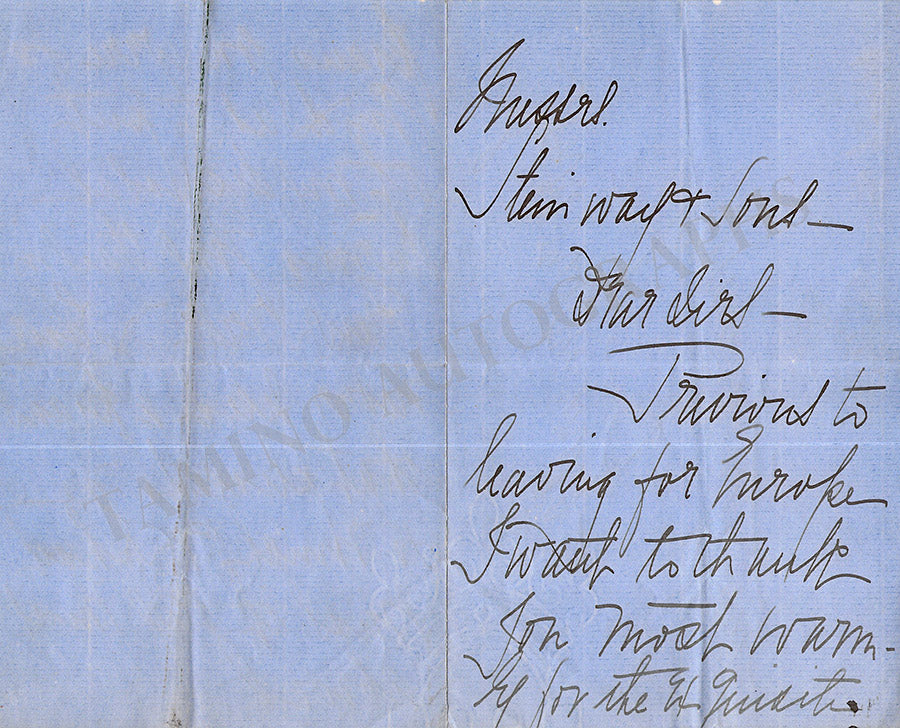 Messrs.
Steinway & Sons —
Dear Sirs —
Previous to
leaving for Europe
I want to thank
you most warm-
ly for the exquisite
TAMINO AUTOGRAPHS